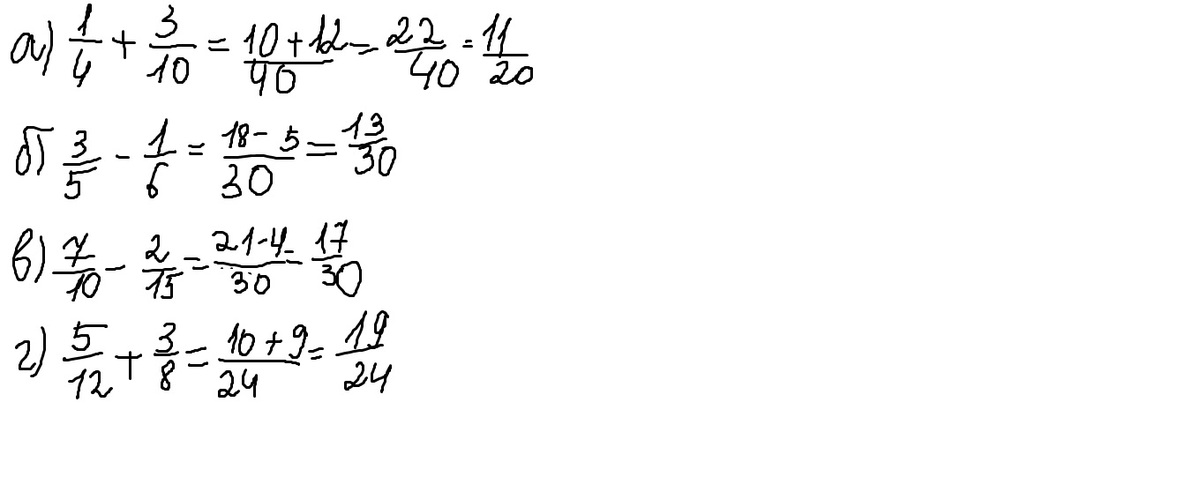 а) 1/4 + 3/10 = 10+12/40 = 22/40 = 11/20
б) 3/5 - 1/6 = 18-5/30 = 13/30
в) 7/10 - 2/15 = 21-4/30 - 17/30
г) 5/12 + 3/8 = 10+9/24 = 19/24